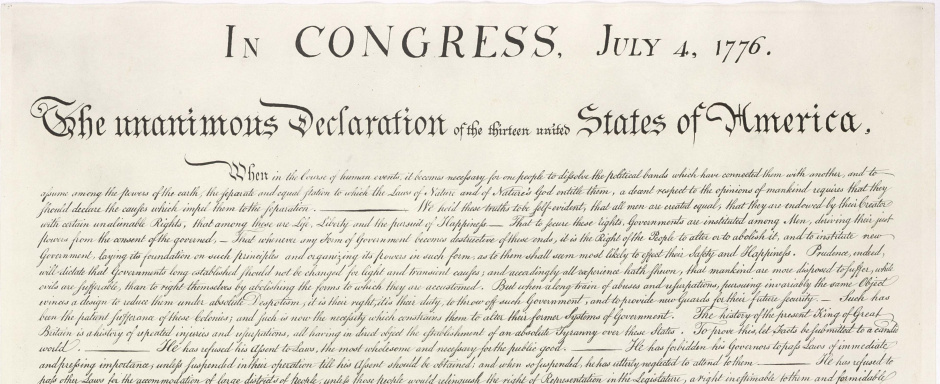 IN CONGRESS, JULY 4, 1776.
The unanimous Declaration of the thirteen united States of America,
When in the Course of human events, it becomes necessary for one people to dissolve the political bands which have connected them with another, and to
assume among the powers of the earth, the separate and equal station to which the Laws of Nature and of Nature's God entitle them, a decent respect to the opinions of mankind requires that they
should declare the causes which impel them to the separation. ——— We hold these truths to be self-evident, that all men are created equal, that they are endowed by their Creator
with certain unalienable Rights, that among these are Life, Liberty and the pursuit of Happiness.— That to secure these rights, Governments are instituted among Men, deriving their just
powers from the consent of the governed, — That whenever any Form of Government becomes destructive of these ends, it is the Right of the People to alter or to abolish it, and to institute new
Government, laying its foundation on such principles and organizing its powers in such form, as to them shall seem most likely to effect their Safety and Happiness. Prudence, indeed,
will dictate that Governments long established should not be changed for light and transient causes; and accordingly all experience hath shewn, that mankind are more disposed to suffer, while
evils are sufferable, than to right themselves by abolishing the forms to which they are accustomed. But when a long train of abuses and usurpations, pursuing invariably the same Object
evinces a design to reduce them under absolute Despotism, it is their right, it is their duty, to throw off such Government, and to provide new Guards for their future security. — Such has
been the patient sufferance of these Colonies; and such is now the necessity which constrains them to alter their former Systems of Government. The history of the present King of Great
Britain is a history of repeated injuries and usurpations, all having in direct object the establishment of an absolute Tyranny over these States. To prove this, let Facts be submitted to a candid
world. ——— He has refused his Assent to Laws, the most wholesome and necessary for the public good. ——— He has forbidden his Governors to pass Laws of immediate
and pressing importance, unless suspended in their operation till his Assent should be obtained; and when so suspended, he has utterly neglected to attend to them. ——— He has refused to
pass other Laws for the accommodation of large districts of people, unless those people would relinquish the right of Representation in the Legislature, a right inestimable to them and formidable